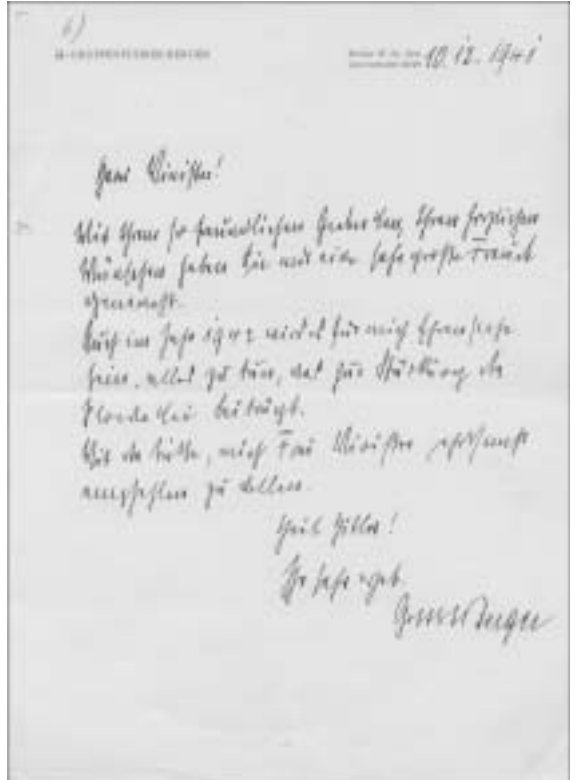 6)
SS-GRUPPENFÜHRER BERGER
10.12.1941
Herr Minister!
Mit Ihrem so freundlichen Gedenken, Ihren herzlichen
Wünschen haben Sie mir eine sehr große Freude
gemacht.
Auch im Jahr 1942 wird es für mich Ehrensache
sein, alles zu tun, was zur Stärkung der
Slowakei beiträgt.
Mit der Bitte, mich Frau Minister
empfehlen zu wollen.
Heil Hitler!
Ihr sehr ergeb.
Berger